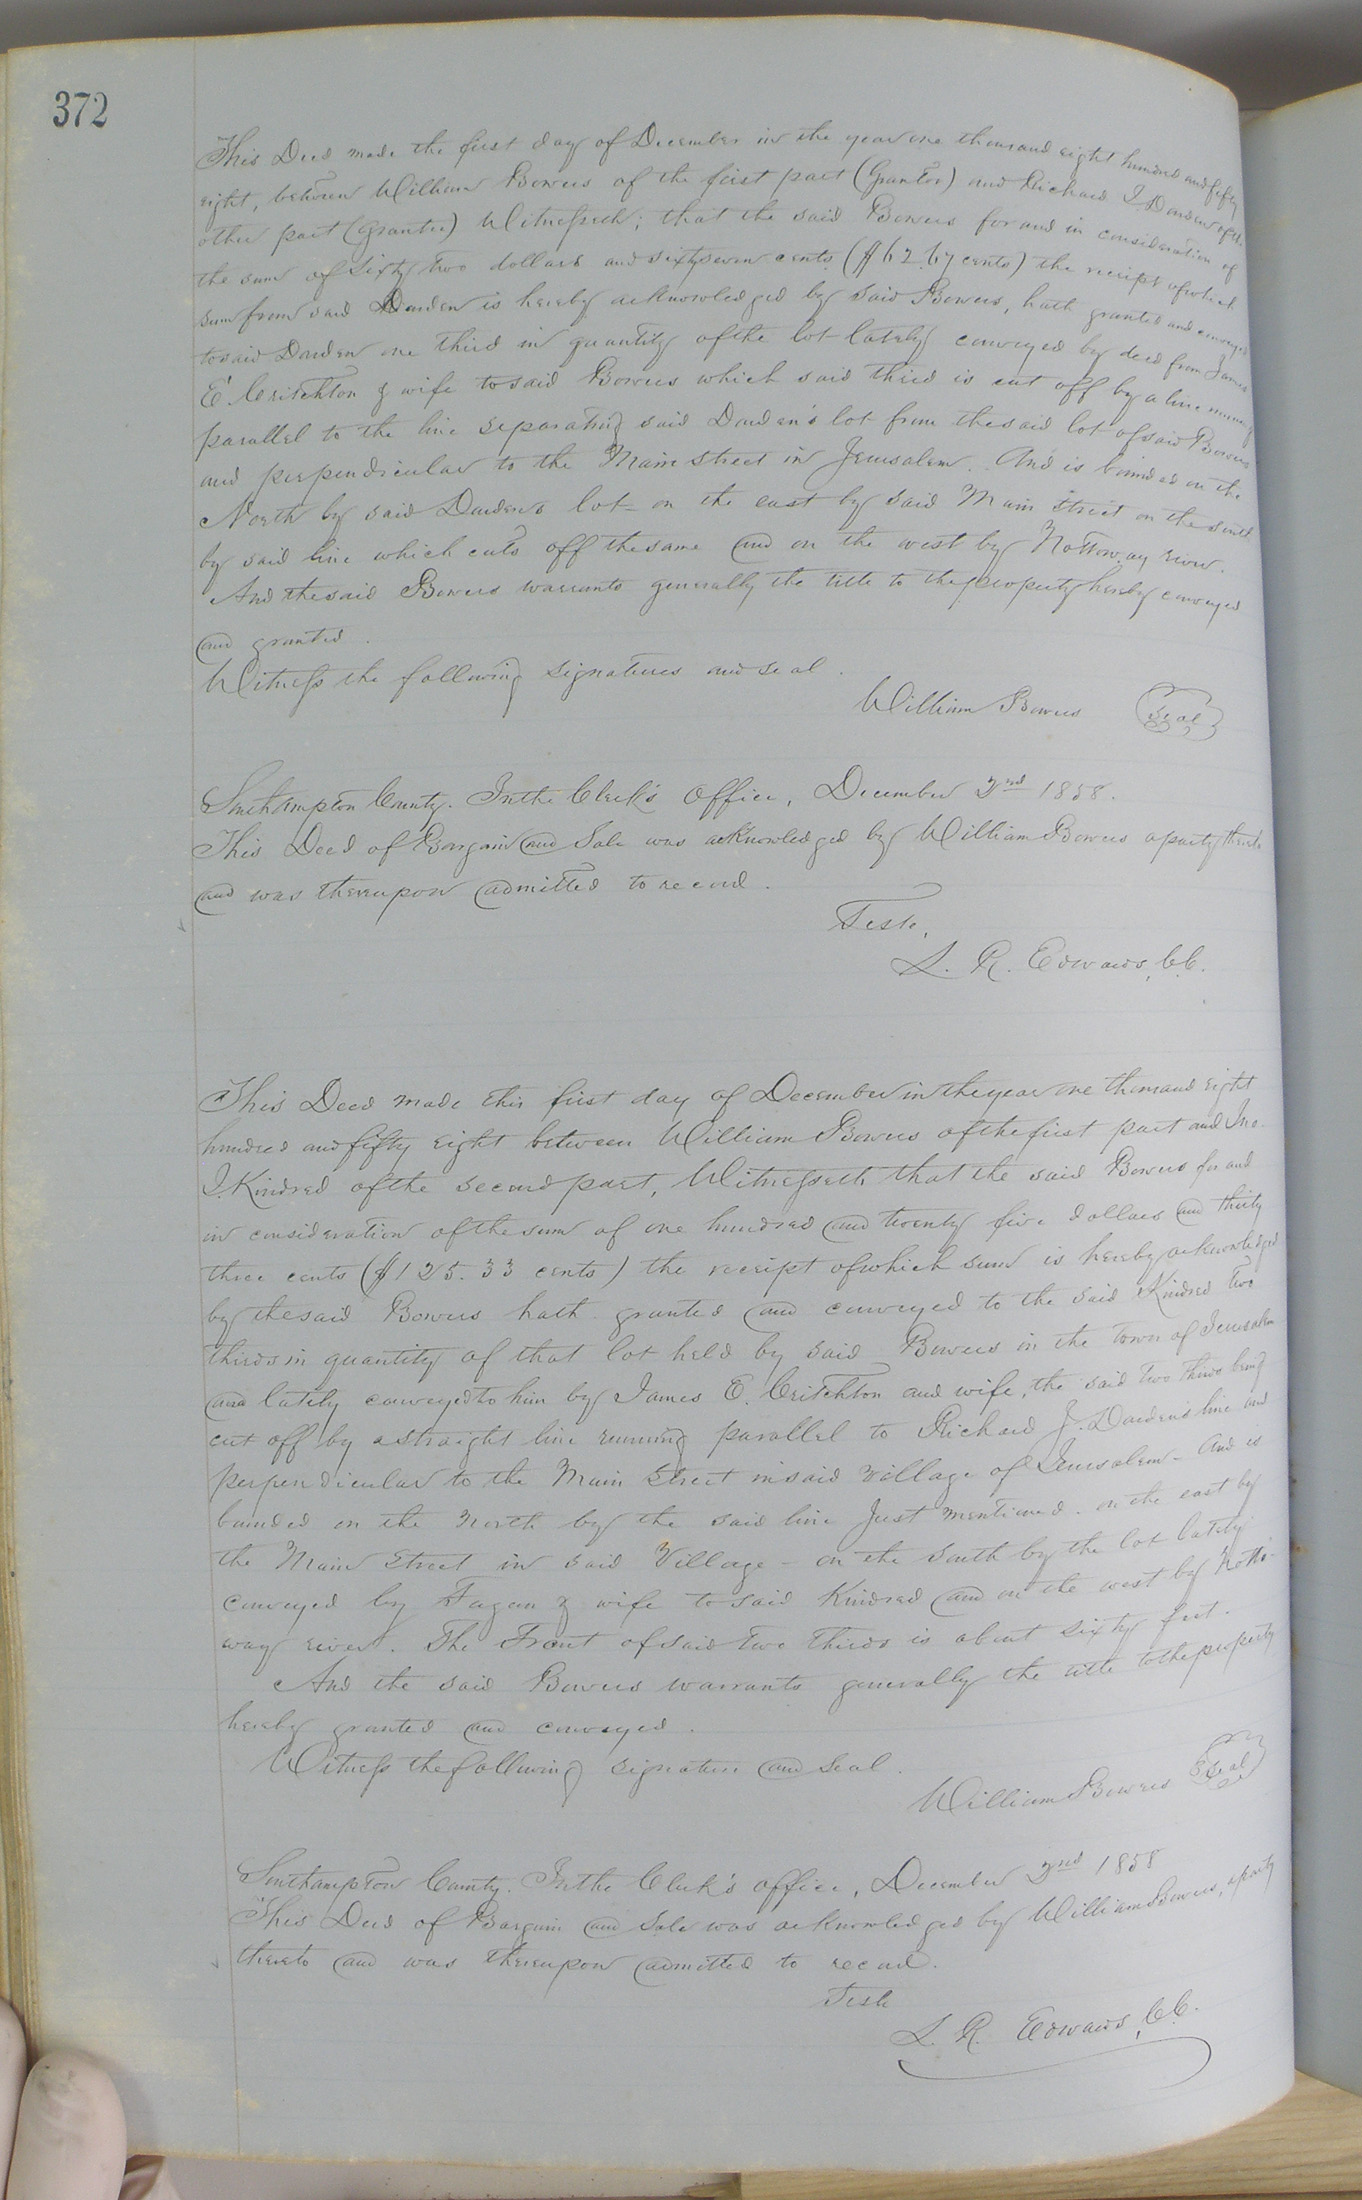 372
This Deed made the first day of December in the year one thousand eight hundred and fifty
eight, between William Bowers of the first part (Grantor) and Richard J Darden of the
other part (Grantee) Witnesseth; that the said Bowers for and in consideration of
the sum of sixty two dollars and sixty seven cents ($62.67 cents) the receipt of which
sum from said Darden is hereby acknowledged by said Bowers, hath granted and conveyed
to said Darden one third in quantity of the lot lately conveyed by deed from James
E. Critchton & wife to said Bowers which said third is cut off by a line running
parallel to the line separating said Darden's lot from the said lot of said Bowers
and perpendicular to the Main street in Jerusalem. And is bounded on the
North by said Darden's lot - on the east by said Main street on the south
by said line which cuts off the same and on the west by Nottoway river.
And the said Bowers warrants generally the title to the property hereby conveyed
and granted.
Witness the following signatures and seal.
William Bowers Seal
Southampton County. In the Clerk's Office, December 2nd 1858.
This Deed of Bargain and Sale was acknowledged by William Bowers a party thereto
and was thereupon admitted to record.
Teste,
L. R. Edwards, C.C.
This Deed made this first day of December in the year one thousand eight
hundred and fifty eight between William Bowers of the first part and Jno.
J. Kindred of the second part, Witnesseth that the said Bowers for and
in consideration of the sum of one hundred and twenty five dollars and thirty
three cents ($125.33 cents) the receipt of which sum is hereby acknowledged
by the said Bowers hath granted and conveyed to the said Kindred two
thirds in quantity of that lot held by said Bowers in the town of Jerusalem
and lately conveyed to him by James E. Critchton and wife, the said two thirds being
cut off by a straight line running parallel to Richard J. Darden's line and
perpendicular to the Main Street in said village of Jerusalem - And is
bounded on the North by the said line Just mentioned - on the east by
the Main Street in said Village - on the South by the lot lately
conveyed by Fagan & wife to said Kindred and on the west by Notto-
way river. The Front of said two thirds is about sixty feet.
And the said Bowers warrants generally the title to the property
hereby granted and conveyed.
Witness the following signature and Seal.
William Bowers Seal
Southampton County. In the Clerk's office, December 2nd 1858
This Deed of Bargain and Sale was acknowledged by William Bowers, a party
thereto and was thereupon admitted to record.
Teste
L. R. Edwards, C.C.